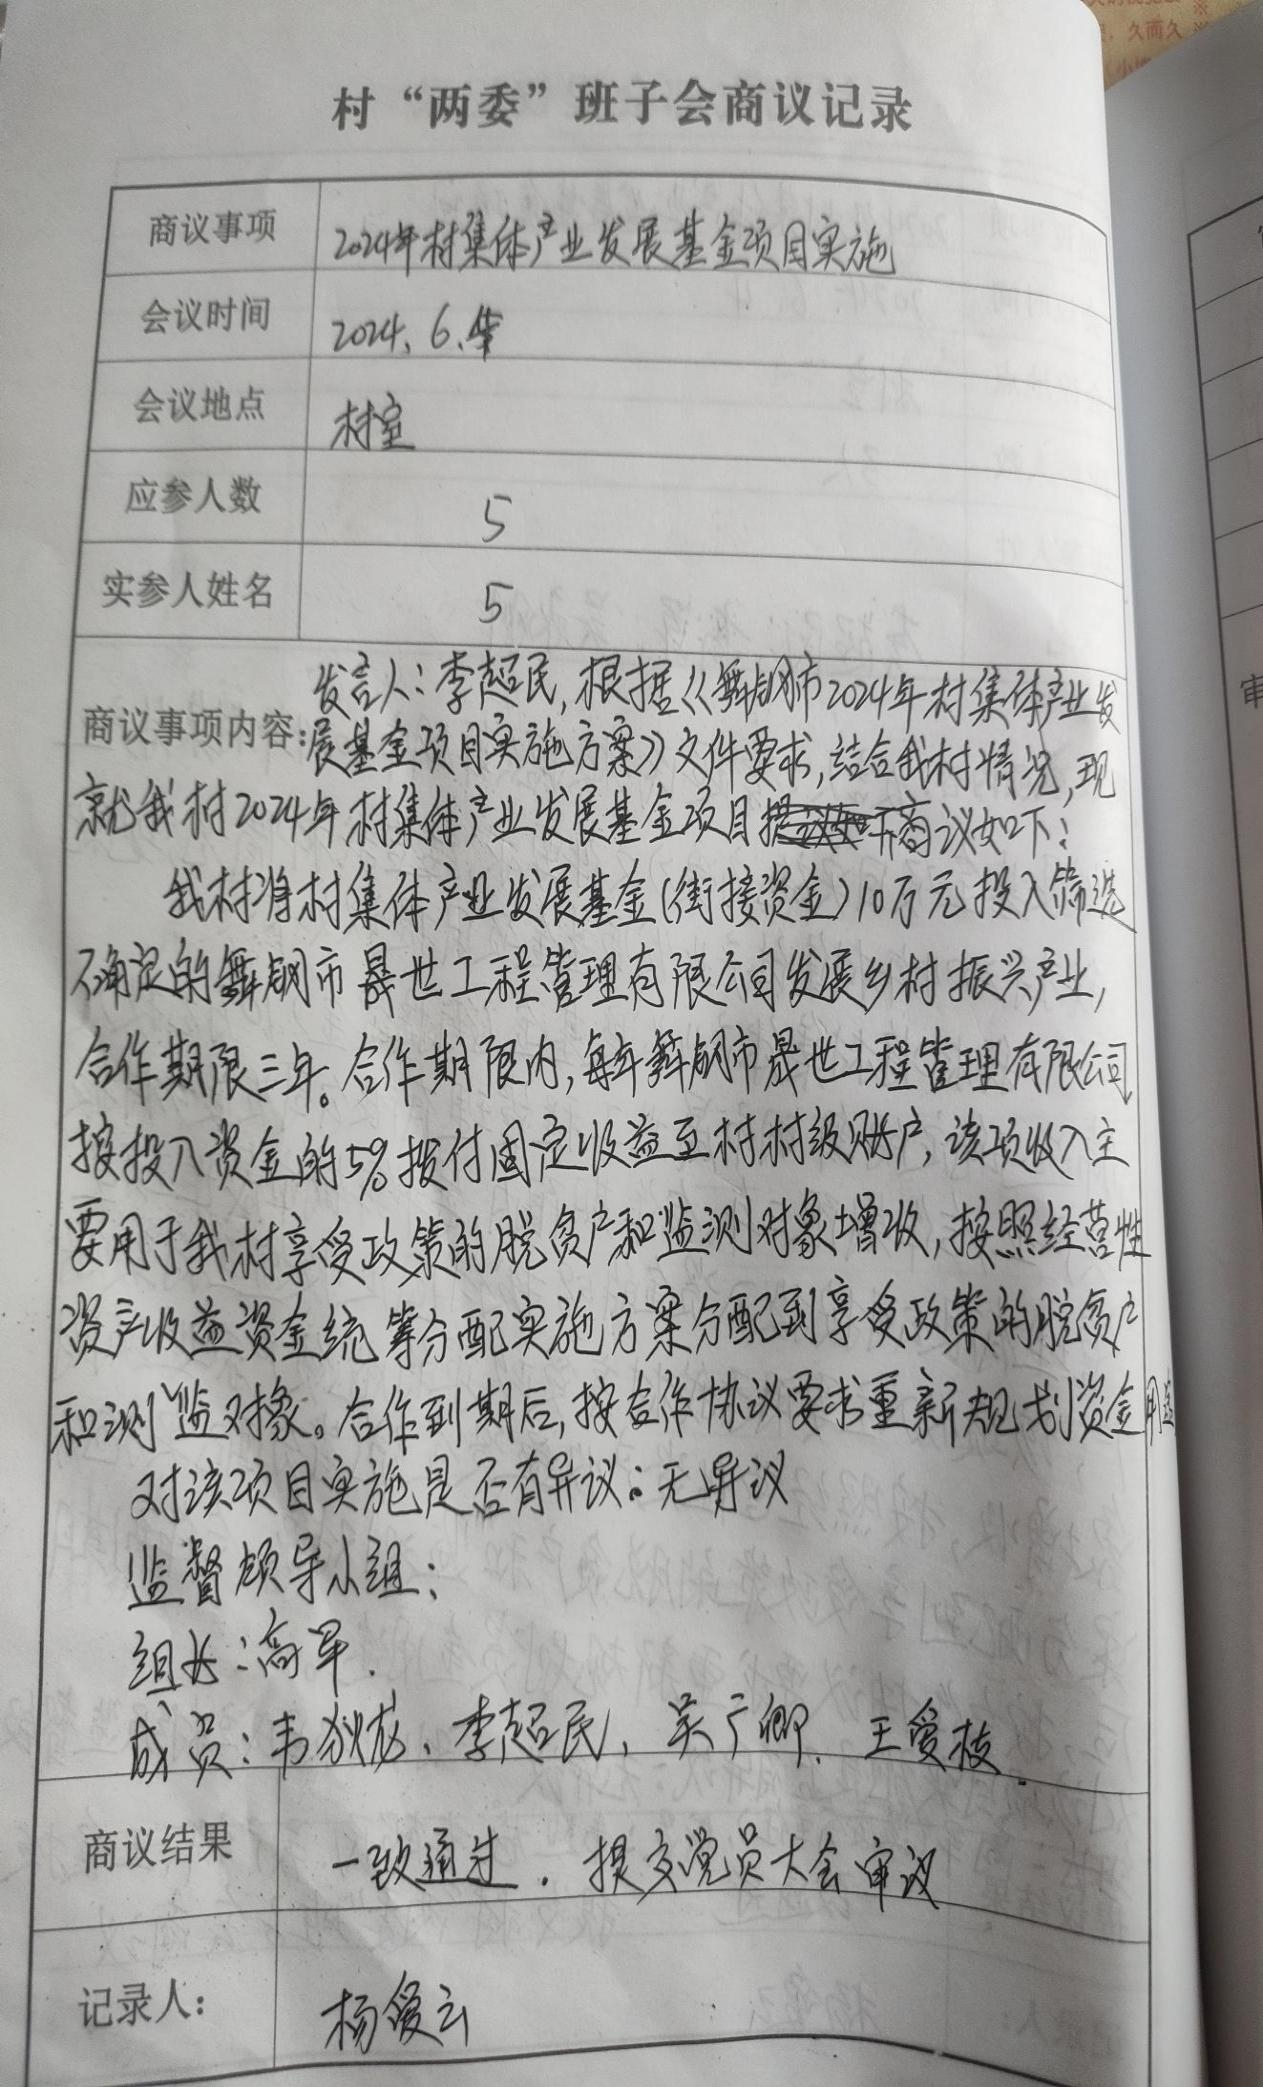 村“两委”班子会商议记录
商议事项 2024年村集体产业发展基金项目实施
会议时间 2024.6.4
会议地点 村室
应参人数 5
实参人姓名 5
发言人：李超民，根据《舞钢市2024年村集体产业发
商议事项内容：展基金项目实施方案》文件要求，结合我村情况，现
就我村2024年村集体产业发展基金项目商议如下：
我村将村集体产业发展基金(衔接资金)10万元投入筛选
确定的舞钢市晟世工程管理有限公司发展乡村振兴产业，
合作期限三年。合作期限内，每年舞钢市晟世工程管理有限公司
按投入资金的5%拨付固定收益至村村级账户，该项收入主
要用于我村享受政策的脱贫户和监测对象增收，按照经营性
资产收益资金统筹分配实施方案分配到享受政策的脱贫户
和测监对象。合作到期后，按合作协议要求重新规划资金用途
对该项目实施是否有异议：无异议
监督领导小组：
组长：高军.
成员：韦 龙、李超民、吴广卿、王爱枝.
商议结果 一致通过. 提交党员大会审议
记录人： 杨爱云
久而久